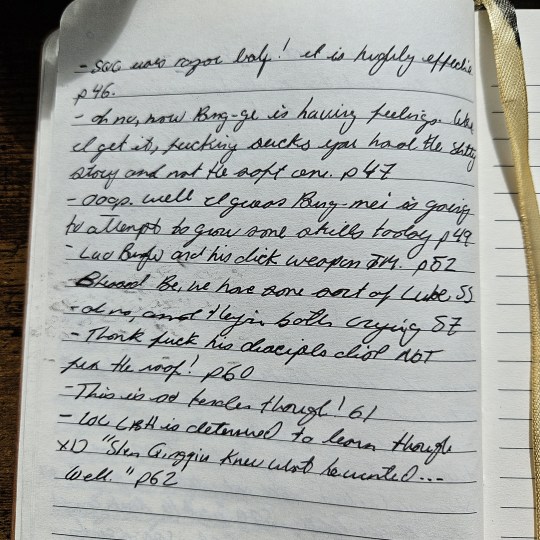 - SQQ uses razor leaf! it is highly effective
p46.
- oh no, now Bing-ge is having feelings. Like
I get it, fucking sucks you had the shitty
story and not the soft one. p47
- oops. well I guess Bing-mei is going
to attempt to grow some skills today p49
- Luo Binghe and his dick weapon TM. p52
Blessed Be, we have some sort of Lube 55
- oh no, and they're both crying 57
- Thank fuck his disciples did NOT
fix the roof! p60
- This is so tender though! 61
- LOL LBH is determined to learn though
XD "Shen Qingqiu knew what he wanted...
Well." p62